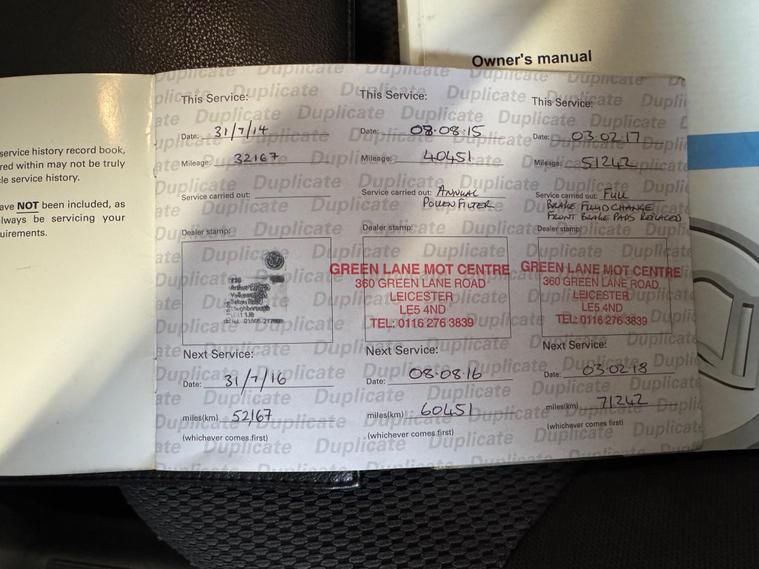 Owner's manual
service history record book,
red within may not be truly
le service history.
ave NOT been included, as
lways be servicing your
uirements.
This Service:
Date: 31/7/14
Mileage: 32167
Service carried out:
Dealer stamp:
Next Service:
Date: 31/7/16
miles(km) 52167
(whichever comes first)
This Service:
Date: 08·08·15
Mileage: 40451
Service carried out: ANNUAL
POLLEN FILTER
Dealer stamp:
GREEN LANE MOT CENTRE
360 GREEN LANE ROAD
LEICESTER
LE5 4ND
TEL: 0116 276 3839
Next Service:
Date: 08·08·16
miles(km) 60451
(whichever comes first)
This Service:
Date: 03·02·17
Mileage: 51242
Service carried out: FULL
BRAKE FLUID CHANGE
FRONT BRAKE PADS REPLACED
Dealer stamp:
GREEN LANE MOT CENTRE
360 GREEN LANE ROAD
LEICESTER
LE5 4ND
TEL: 0116 276 3839
Next Service:
Date: 03·02·18
miles(km) 71242
(whichever comes first)
Duplicate